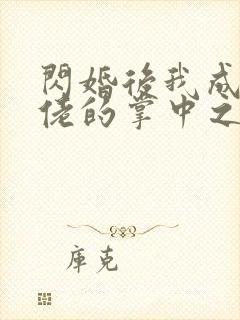 閃婚後我成
佬的掌中之
庫克